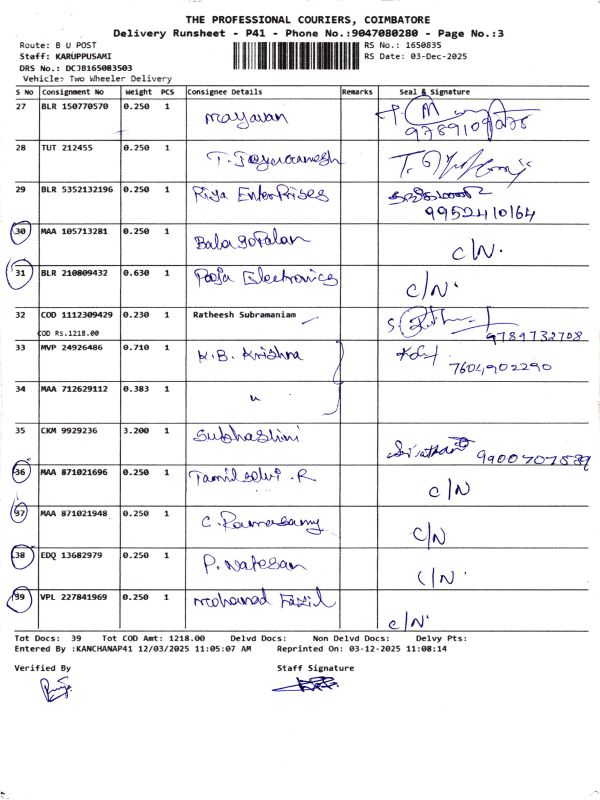 THE PROFESSIONAL COURIERS, COIMBATORE
Delivery Runsheet - P41 - Phone No.:9047080280 - Page No.:3
Route: B U POST RS No.: 1650835
Staff: KARUPPUSAMI RS Date: 03-Dec-2025
DRS No.: DCJB165083503
Vehicle: Two Wheeler Delivery
S No Consignment No Weight PCS Consignee Details Remarks Seal & Signature
27 BLR 150770570 0.250 1 Mayavan
28 TUT 212455 0.250 1
29 BLR 5352132196 0.250 1 Riya Enterprises
9952410164
30 MAA 105713281 0.250 1 Balagopalan C/N.
31 BLR 210809432 0.630 1 Pooja Electronics C/N.
32 COD 1112309429 0.230 1 Ratheesh Subramaniam
COD Rs.1218.00 9789732708
33 MVP 24926486 0.710 1 K.B. Krishna
7604902290
34 MAA 712629112 0.383 1 "
35 CKM 9929236 3.200 1 Subhashini
36 MAA 871021696 0.250 1 Tamilselvi.R C/N
37 MAA 871021948 0.250 1 C. Ramasamy C/N
38 EDQ 13682979 0.250 1 P. Natesan C/N.
39 VPL 227841969 0.250 1 Mohamad Fazil C/N.
Tot Docs: 39 Tot COD Amt: 1218.00 Delvd Docs: Non Delvd Docs: Delvy Pts:
Entered By :KANCHANAP41 12/03/2025 11:05:07 AM Reprinted On: 03-12-2025 11:08:14
Verified By Staff Signature